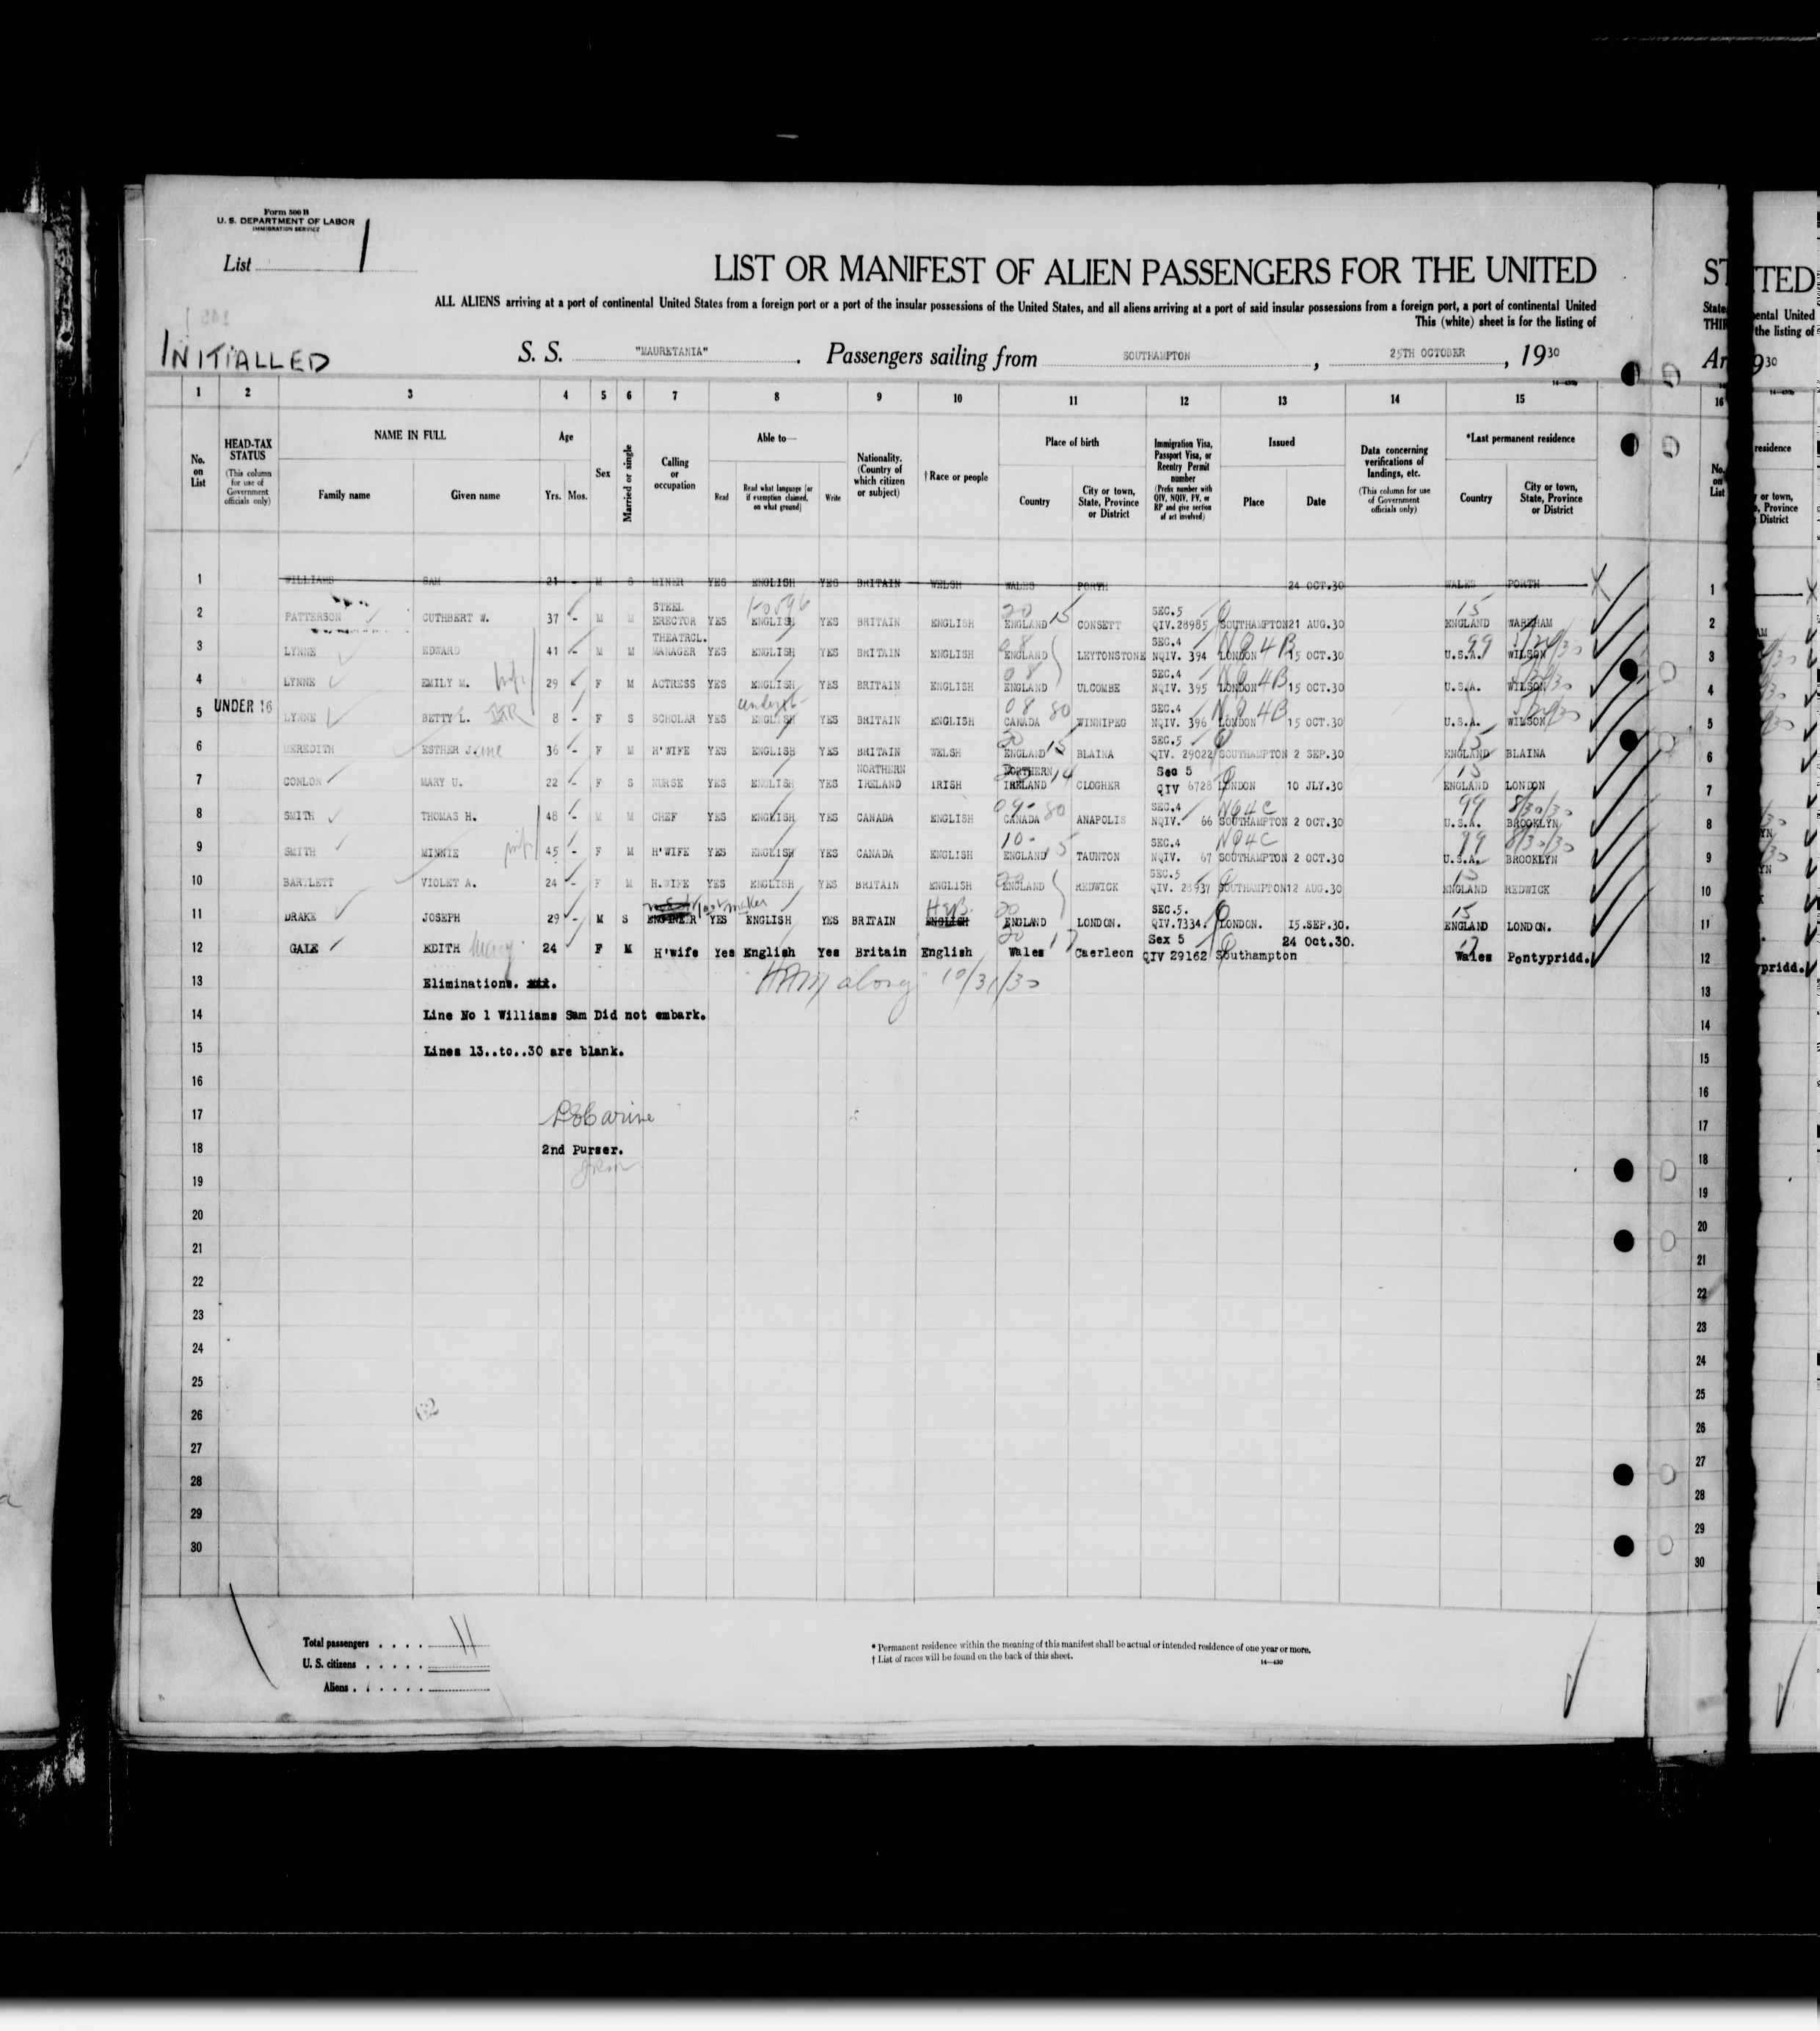 Form 500 B
U. S. DEPARTMENT OF LABOR
IMMIGRATION SERVICE
List 1
LIST OR MANIFEST OF ALIEN PASSENGERS FOR THE UNITED
ALL ALIENS arriving at a port of continental United States from a foreign port or a port of the insular possessions of the United States, and all aliens arriving at a port of said insular possessions from a foreign port, a port of continental United
This (white) sheet is for the listing of
INITIALLED
S. S. "MAURETANIA" . Passengers sailing from SOUTHAMPTON , 25TH OCTOBER , 19 30
1 2 3 4 5 6 7 8 9 10 11 12 13 14 15
No. on List
HEAD-TAX STATUS (This column for use of Government officials only)
NAME IN FULL Family name Given name
Age Yrs. Mos.
Sex
Married or single
Calling or occupation
Able to— Read Read what language [or if exemption claimed, on what ground] Write
Nationality. (Country of which citizen or subject)
† Race or people
Place of birth Country City or town, State, Province or District
Immigration Visa, Passport Visa, or Reentry Permit number (Prefix number with QIV, NQIV, PV, or RP and give section of act involved)
Issued Place Date
Data concerning verifications of landings, etc. (This column for use of Government officials only)
*Last permanent residence Country City or town, State, Province or District
1 WILLIAMS SAM 21 - M S MINER YES ENGLISH YES BRITAIN WELSH WALES PORTH 24 OCT.30 WALES PORTH
2 PATTERSON CUTHBERT W. 37 - M M STEEL ERECTOR YES ENGLISH YES BRITAIN ENGLISH ENGLAND CONSETT SEC.5 QIV.28985 SOUTHAMPTON 21 AUG.30 ENGLAND WAREHAM
3 LYNNE EDWARD 41 - M M THEATRCL. MANAGER YES ENGLISH YES BRITAIN ENGLISH ENGLAND LEYTONSTONE SEC.4 NQIV. 394 LONDON 15 OCT.30 U.S.A. WILSON
4 LYNNE EMILY M. 29 F M ACTRESS YES ENGLISH YES BRITAIN ENGLISH ENGLAND ULCOMBE SEC.4 NQIV. 395 LONDON 15 OCT.30 U.S.A. WILSON
5 UNDER 16 LYNNE BETTY L. 8 - F S SCHOLAR YES ENGLISH YES BRITAIN ENGLISH CANADA WINNIPEG SEC.4 NQIV. 396 LONDON 15 OCT.30 U.S.A. WILSON
6 MEREDITH ESTHER Jane 36 - F M H'WIFE YES ENGLISH YES BRITAIN WELSH ENGLAND BLAINA SEC.5 QIV. 29022 SOUTHAMPTON 2 SEP.30 ENGLAND BLAINA
7 CONLON MARY U. 22 - F S NURSE YES ENGLISH YES NORTHERN IRELAND IRISH NORTHERN IRELAND CLOGHER Sec 5 QIV 6728 LONDON 10 JLY.30 ENGLAND LONDON
8 SMITH THOMAS H. 48 - M M CHEF YES ENGLISH YES CANADA ENGLISH CANADA ANAPOLIS SEC.4 NQIV. 66 SOUTHAMPTON 2 OCT.30 U.S.A. BROOKLYN
9 SMITH MINNIE 45 - F M H'WIFE YES ENGLISH YES CANADA ENGLISH ENGLAND TAUNTON SEC.4 NQIV. 67 SOUTHAMPTON 2 OCT.30 U.S.A. BROOKLYN
10 BARTLETT VIOLET A. 24 - F M H.WIFE YES ENGLISH YES BRITAIN ENGLISH ENGLAND REDWICK SEC.5 QIV. 28937 SOUTHAMPTON 12 AUG.30 ENGLAND REDWICK
11 DRAKE JOSEPH 29 - M S ENGINEER YES ENGLISH YES BRITAIN ENGLISH ENGLAND LONDON. SEC.5. QIV.7334. LONDON. 15.SEP.30. ENGLAND LONDON.
12 GALE EDITH Mary 24 F M H'wife Yes English Yes Britain English Wales Caerleon Sex 5 QIV 29162 Southampton 24 Oct.30. Wales Pontypridd.
13 Eliminations.
14 Line No 1 Williams Sam Did not embark.
15 Lines 13..to..30 are blank.
16
17
18 2nd Purser.
19
20
21
22
23
24
25
26
27
28
29
30
Total passengers . . . . 11
U. S. citizens . . . . .
Aliens . . . . . .
* Permanent residence within the meaning of this manifest shall be actual or intended residence of one year or more.
† List of races will be found on the back of this sheet.
14—430